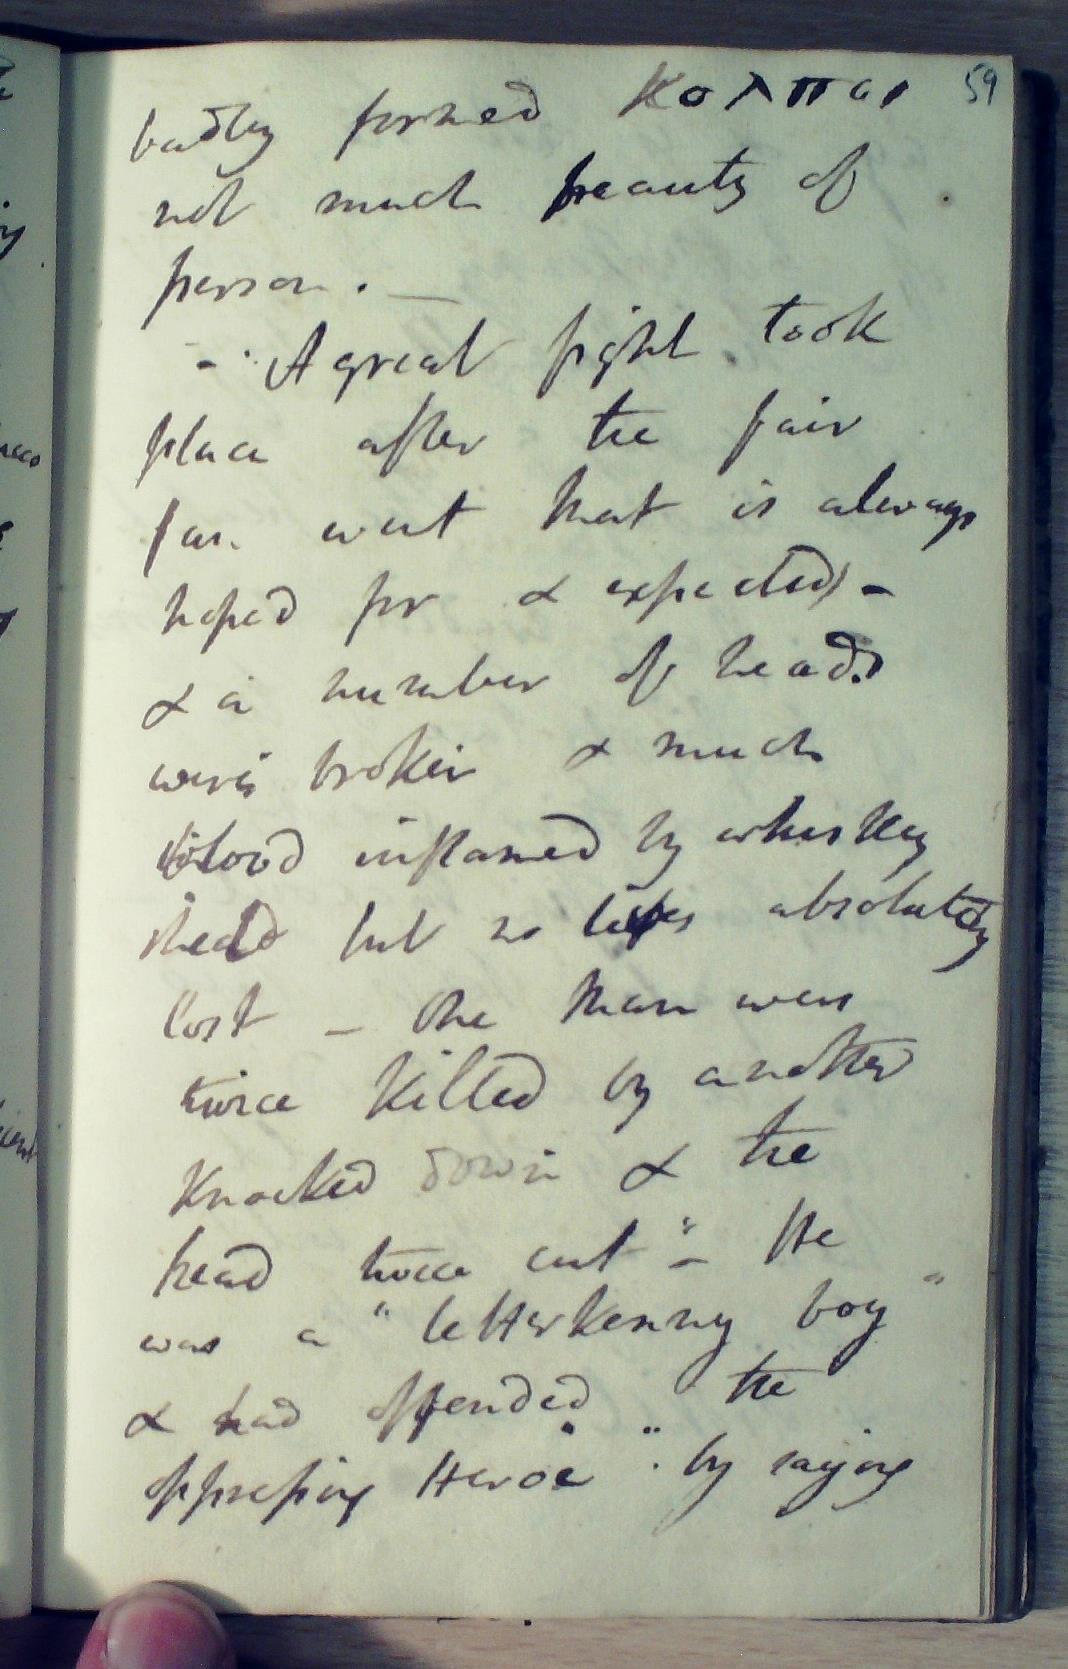 59
badly formed κολποι
not much beauty of
person. —
- A great fight took
place after the fair
for want that is always
hoped for & expected) -
& a number of heads
were broken & much
blood inflamed by whiskey
shed but no lifes absolutely
lost — One man was
twice killed by another
Knocked down & the
head twice cut" - He
was a "letterkenny boy"
& had offended the
oppressing "Heroe" by saying